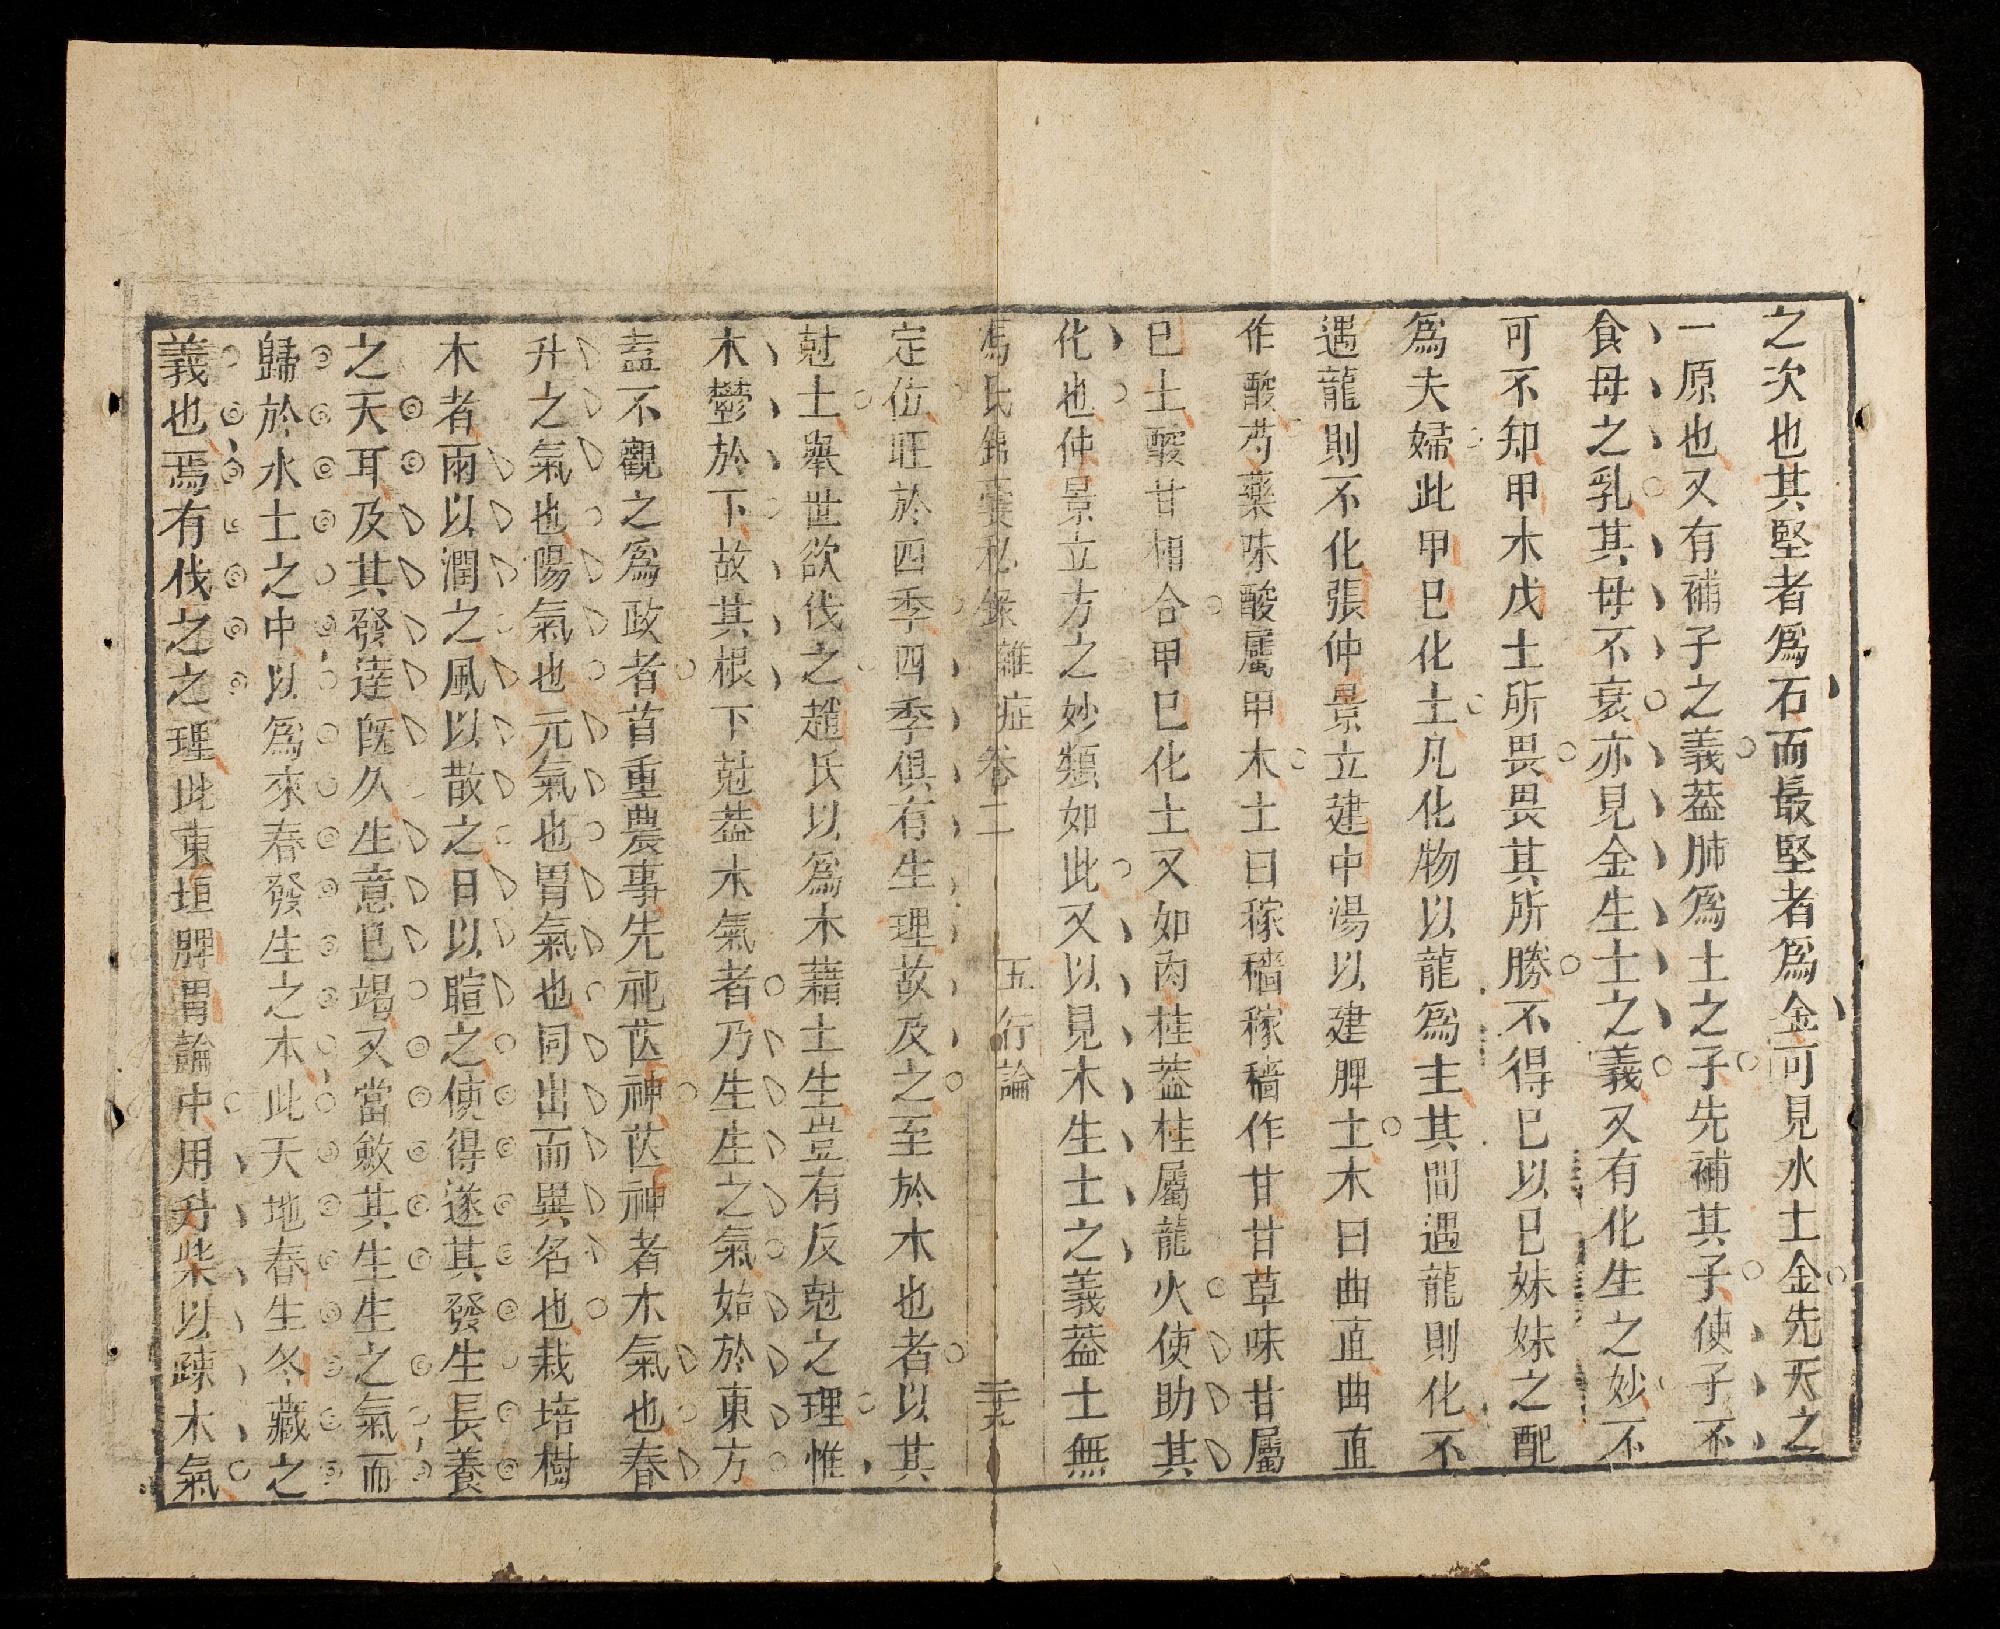 之次也其堅者爲石而最堅者爲金可見水土金先天之
一原也又有補子之義葢肺爲土之子先補其子使子不
食母之乳其母不衰亦見金生土之義又有化生之妙不
可不知甲木戊土所畏畏其所勝不得已以已妹妹之配
爲夫婦此甲已化土凡化物以龍爲主其間遇龍則化不
遇龍則不化張仲景立建中湯以建脾土木曰曲直曲直
作酸芍藥味酸屬甲木土曰稼穡稼穡作甘甘草味甘屬
已土酸甘相合甲已化土又如肉桂葢桂屬龍火使助其
化也仲景立方之妙類如此又以見木生土之義葢土無
馮氏錦囊秘錄 雜症卷二 五行論 三十九
定位旺於四季四季俱有生理故及之至於木也者以其
尅土舉世欲伐之趙氏以爲木藉土生豈有反尅之理惟
木鬱於下故其根下尅葢木氣者乃生生之氣始於東方
盍不觀之爲政者首重農事先祀芒神芒神者木氣也春
升之氣也陽氣也元氣也胃氣也同出而異名也栽培樹
木者雨以潤之風以散之日以暄之使得遂其發生長養
之天耳及其發達旣久生意已竭又當斂其生生之氣而
歸於水土之中以爲來春發生之本此天地春生冬藏之
義也焉有伐之之理此東垣脾胃論中用升柴以疎木氣